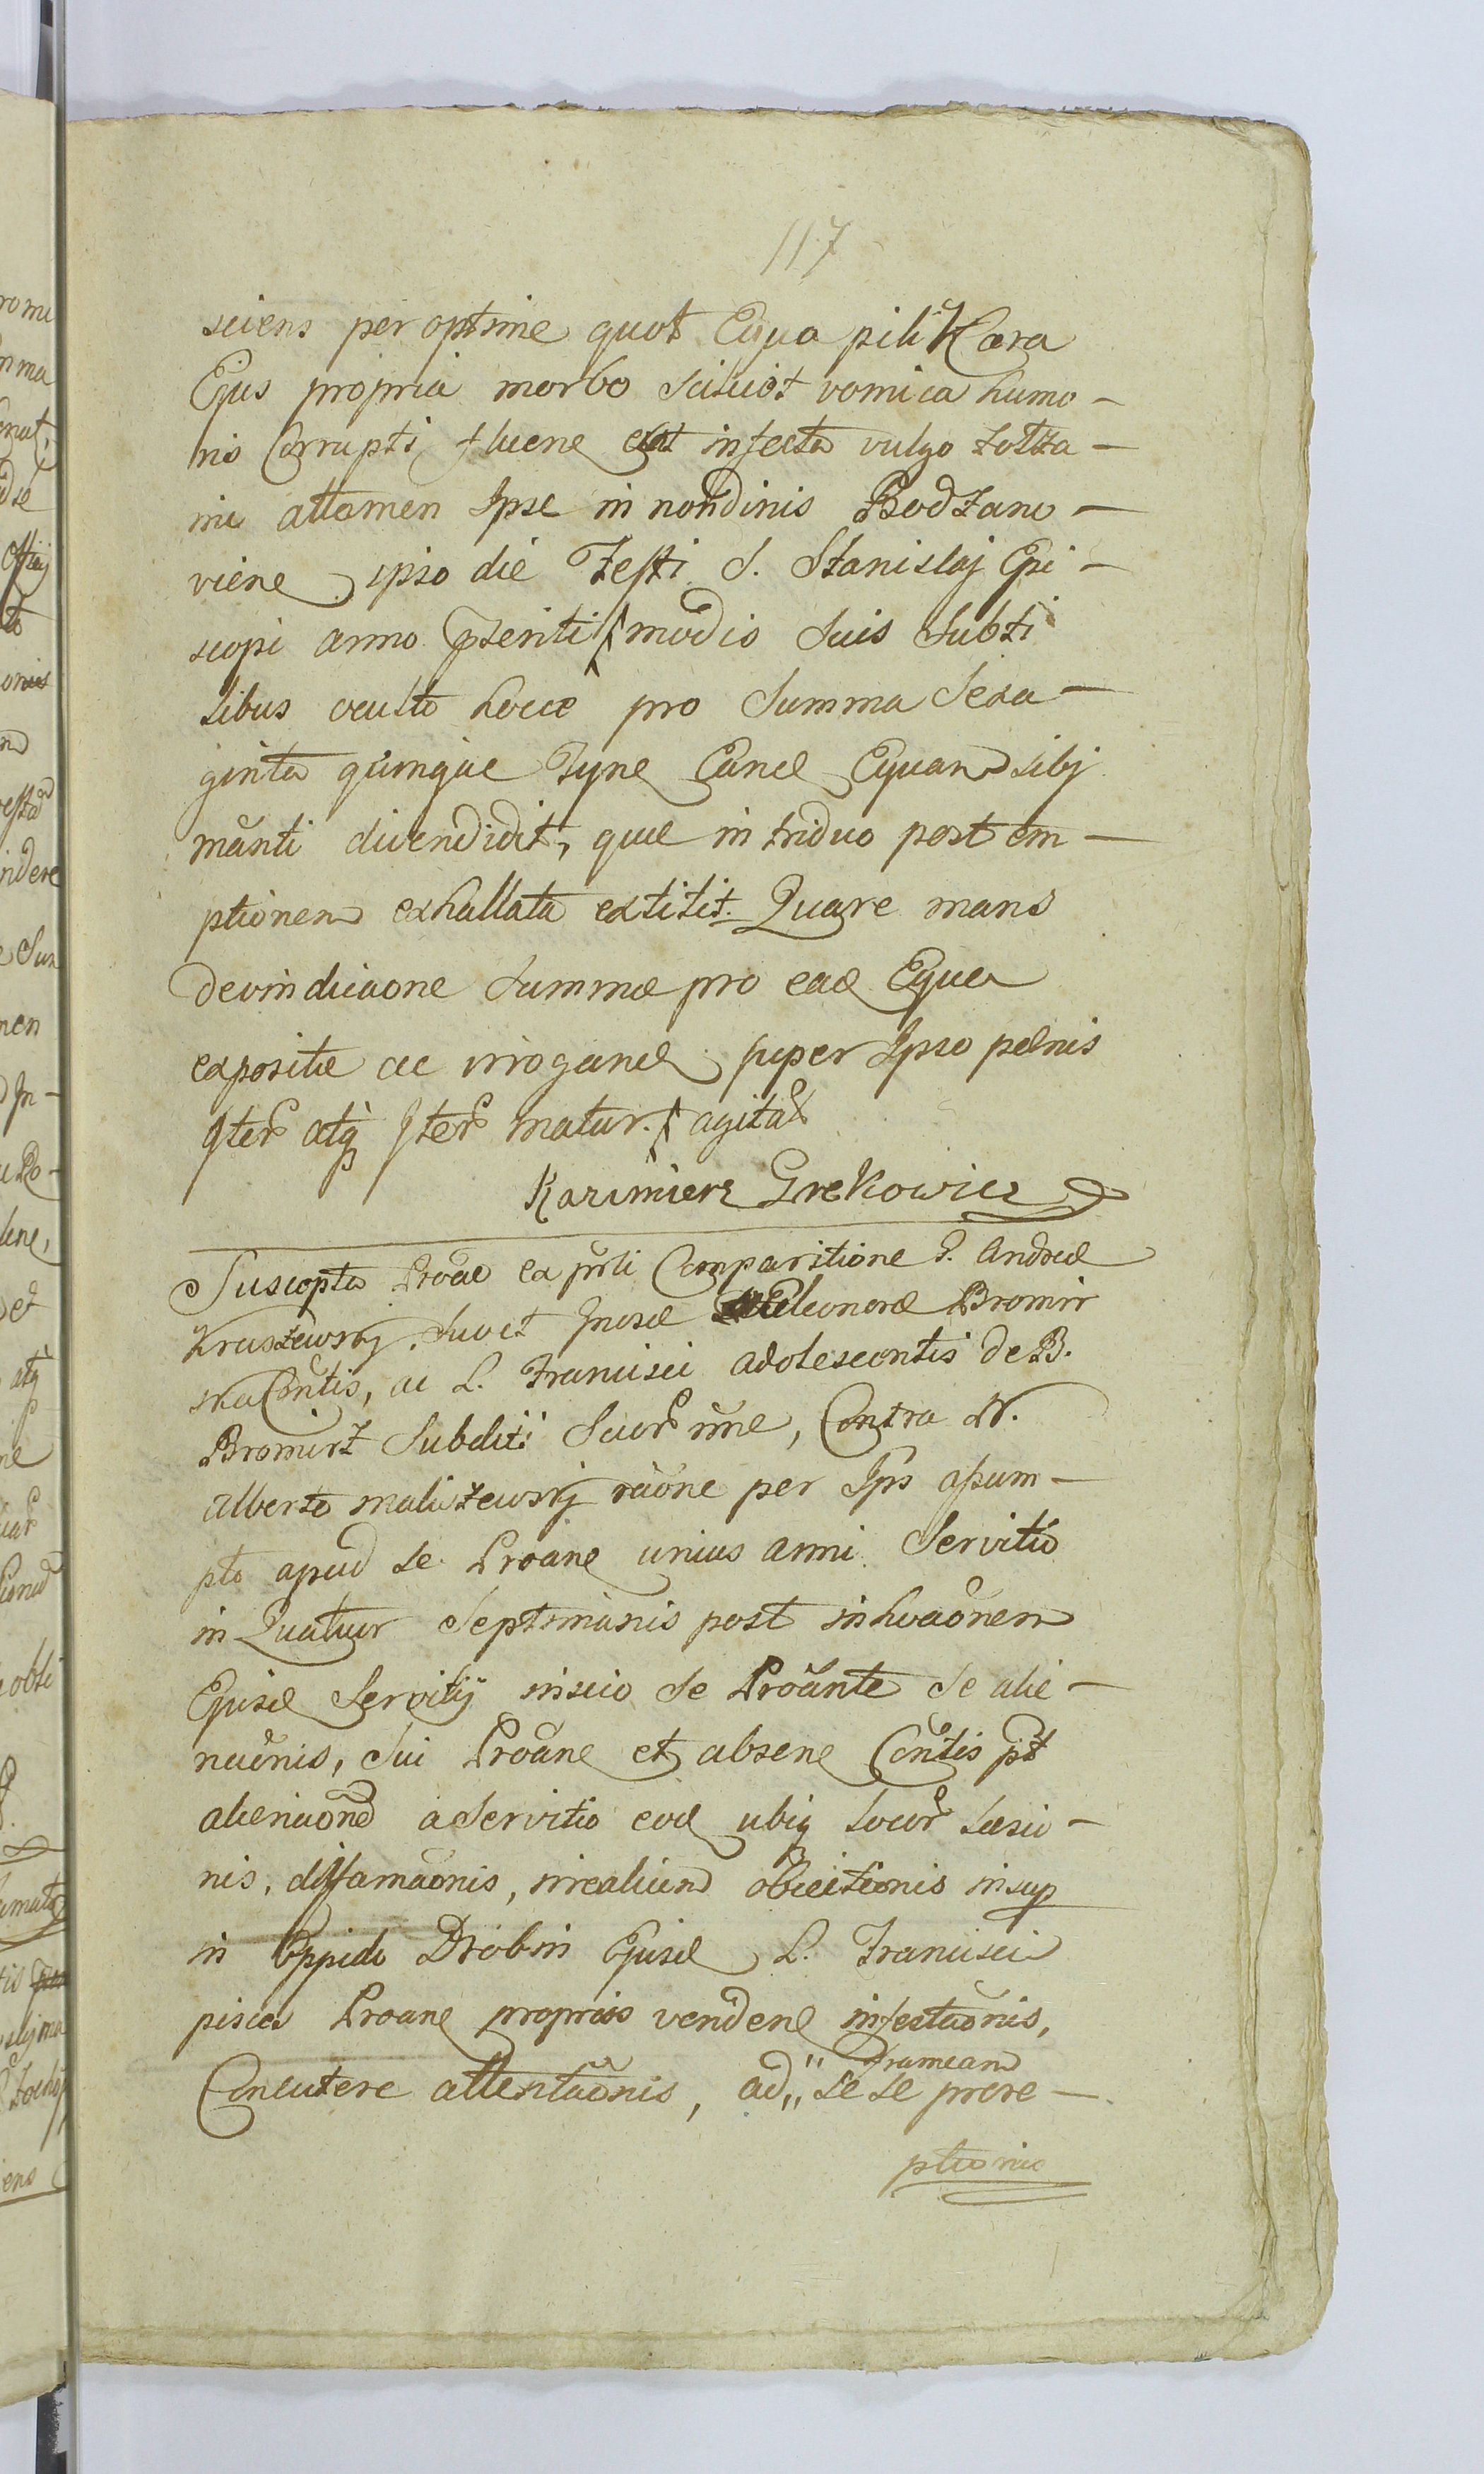 117
sciens per optime quot Equa pili Kara
Ejus propria morbo scilicet vomica humo-
ris Corrupti fluene est infecta vulgo zołza-
mi attamen Ipse in nondinis Bodzano-
viene ipso die Festi S. Stanislaj Epi-
scopi anno pterito modis suis subti
libus oculto hocce pro Summa Sexa-
ginta quinque Tyne Eand Equam sibj
mãnti divendidit, quæ in triduo post em-
ptionem exhallata extitit. Quare mans
de vindicaone summæ pro ead Equa
expositæ ac irrogand super Ipso pœnis
Iter atq Iter matur. agitat
Kazimierz Grekowicz
Suscepta Proae ex prti Comparitione G. Andreæ
Kruszewskj, suo et Gnosæ Eleonoræ Bromir
ska Contis, ac L. Francisci adolescentis de B.
Bromirz Subditi Suor nne, Contra N.
Alberto Maliszewskj raõne per Ips assum-
pto apud se Proane unius anni Servitio
in Quatuor Septimanis post inhoaõnem
Ejusd Servitij inscio se Proãnte se alie-
naõnis, sui Proãne et absene Contis pt
alienaone a Servitio eod ubiq locor læsio-
nis, diffamaõnis, obiicitionis insup
in Oppido Drobin Ejusd L. Francisci
pisces Proane proprios vendene infestaõnis,
frameam
Concutere attentaõnis, ad,, se se prore-
ptionis